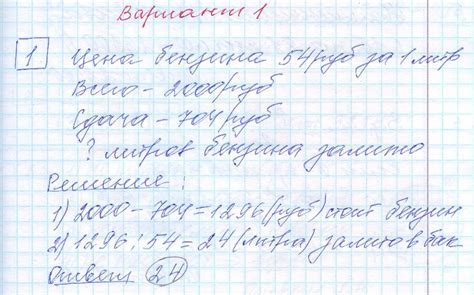 Вариант 1
1 Цена бензина 54 руб за 1 литр
Всего - 2000 руб
Сдача - 704 руб
? литров бензина залито
Решение:
1) 2000 - 704 = 1296 (руб) стоит бензин
2) 1296 : 54 = 24 (литра) залито в бак
Ответ 24